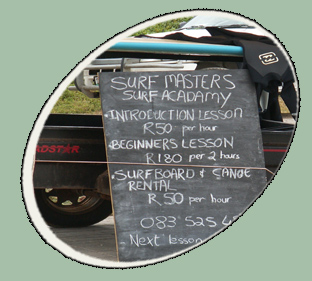 SURF MASTERS
SURF ACADAMY
• INTRODUCTION LESSON
R50 per hour
• BEGINNERS LESSON
R180 per 2 hours
• SURFBOARD & CANOE
RENTAL
R50 per hour
083 525
- Next lesson